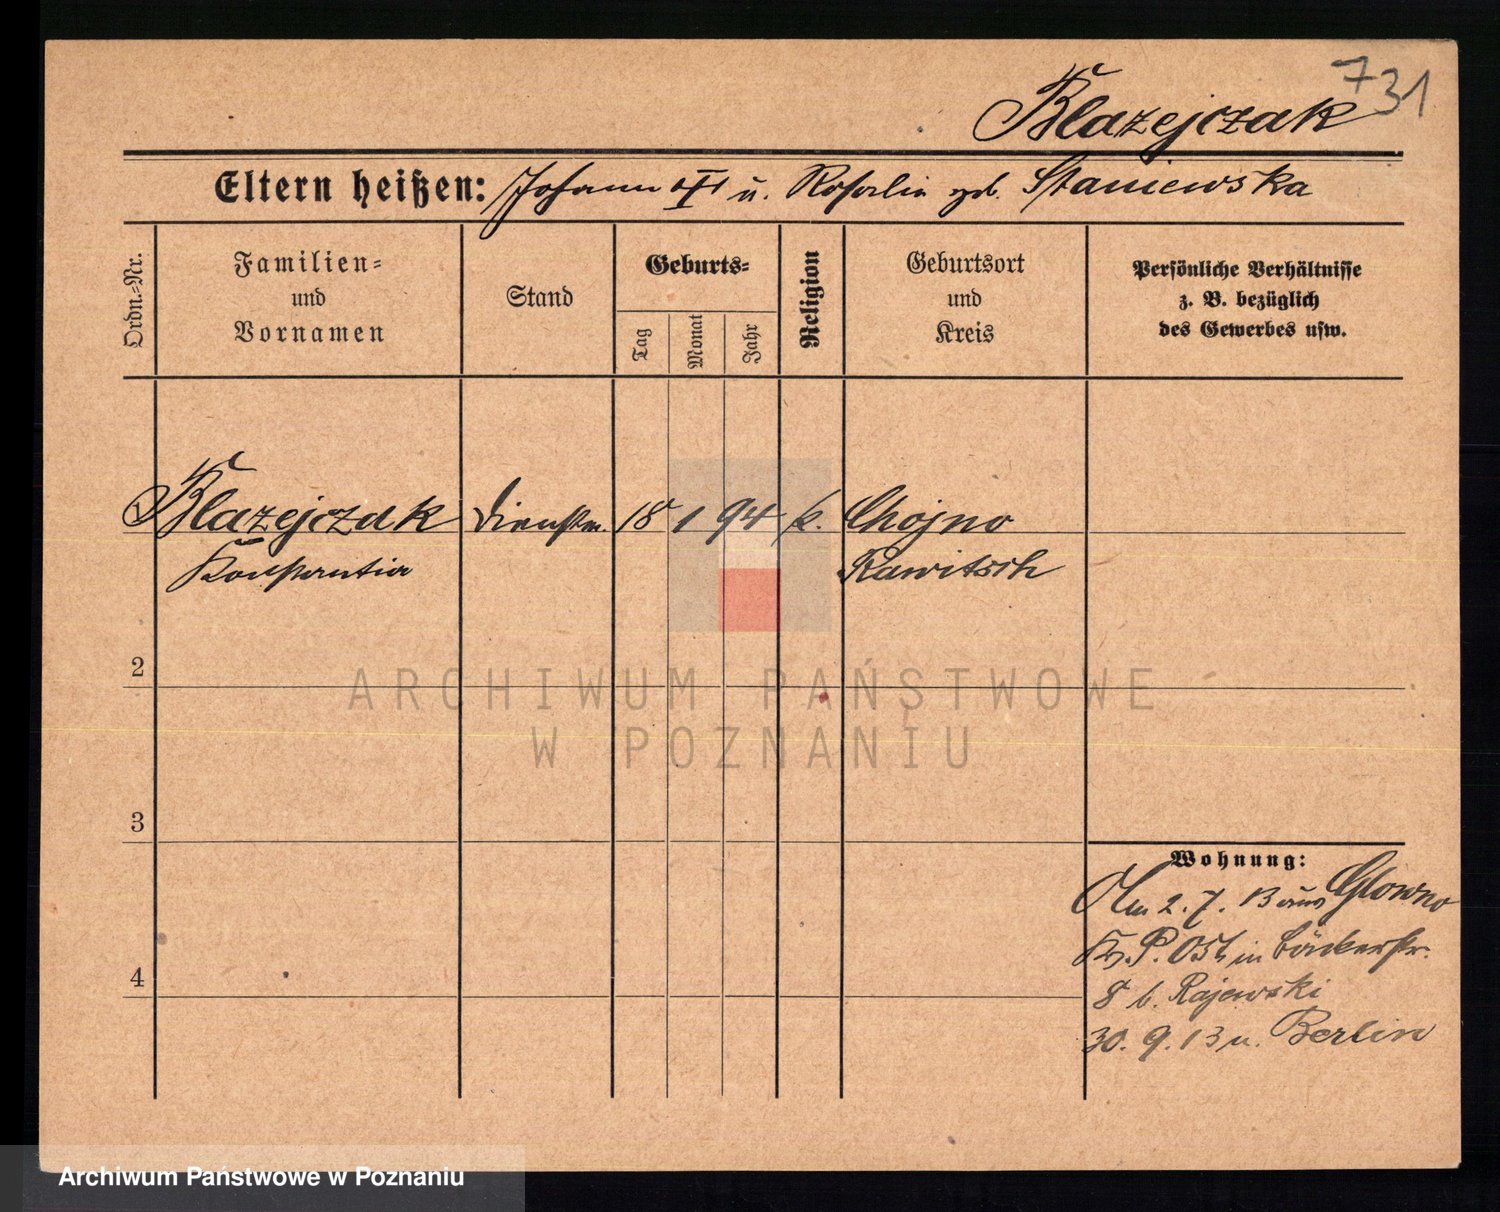 731
Blazejczak
Eltern heißen: Johann u. Rosalie geb. Staniewska
Ordn.-Nr.
Familien-
und
Vornamen
Stand
Geburts-
Tag
Monat
Jahr
Religion
Geburtsort
und
Kreis
Persönliche Verhältnisse
z. B. bezüglich
des Gewerbes usw.
Blazejczak Dienstm. 18 1 94 k. Chojno
Konstantia Rawitsch
2
ARCHIWUM PAŃSTWOWE
W POZNANIU
3
Wohnung:
2. 7. 13 aus Glowno
Kr. P. Ost in Bäckerstr.
8 b. Rajewski
30. 9. 13 n. Berlin
4
Archiwum Państwowe w Poznaniu